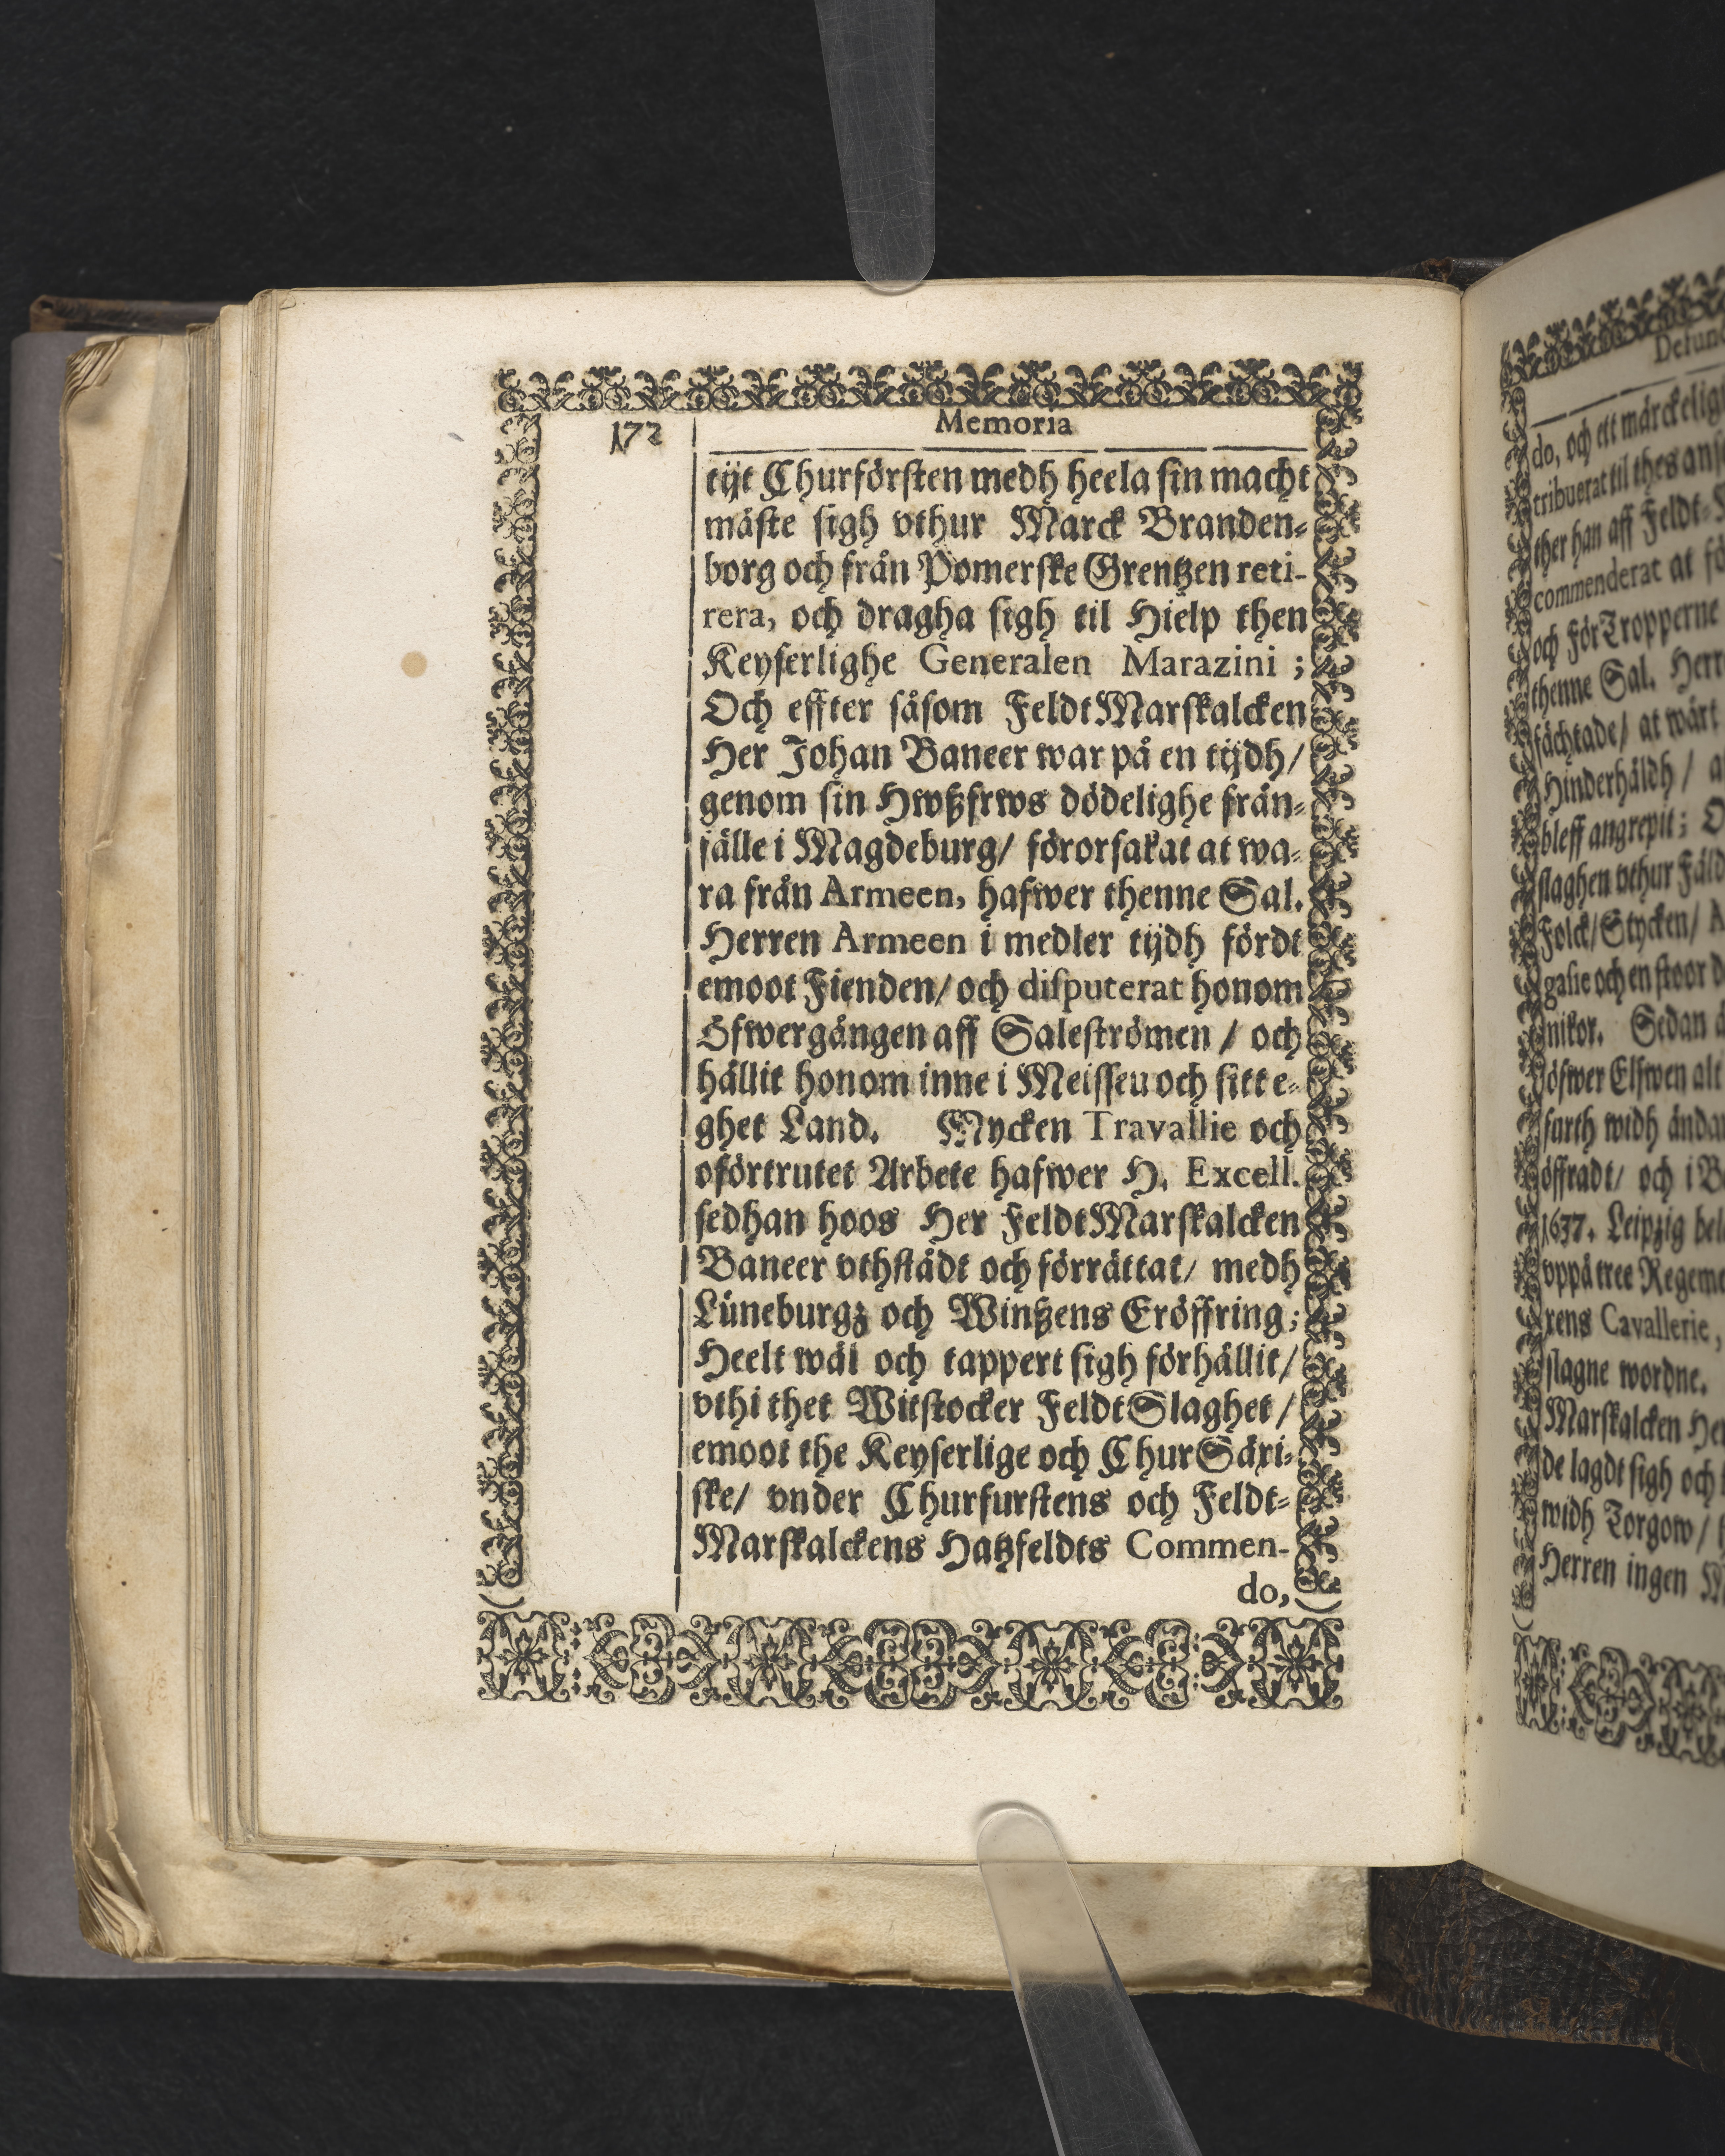 172
Memoria
tijt Churförsten medh heela sin macht
måste sigh vthur Marck Branden-
borg och från Pomerske Grentzen reti-
rera, och dragha sigh til Hielp then
Keyserlighe Generalen Marazini ;
Och effter såsom FeldtMarskalcken
Her Johan Baneer war på en tijdh/
genom sin Hwßfrws dödelighe från-
fälle i Magdeburg/ förorsakat at wa-
ra från Armeen, hafwer thenne Sal.
Herren Armeen i medler tijdh fördt
emoot Fienden/ och disputerat honom
Öfwergången aff Saleströmen / och
hållit honom inne i Meisseu och sitt e-
ghet Land. Mycken Travallie och
oförtrutet Arbete hafwer H. Excell.
sedhan hoos Her FeldtMarskalcken
Baneer vthstådt och förrättat/ medh
Lüneburgz och Wintzens Eröffring;
Heelt wäl och tappert sigh förhållit/
vthi thet Witstocker FeldtSlaghet /
emoot the Keyserlige och ChurSäxi-
ske/ vnder Churfurstens och Feldt-
Marskalckens Hatzfeldts Commen-
do,
do, och ett märckelig
tribuerat til thes
ther han aff Feldt-
commenderat at
och FörTropperne
thenne Sal. Herr
fächtade/ at wårt
Hinderhåldh /
bleff angrepit;
slaghen vthur
Folck/ Stycken/
gasie och en stoor
nikor. Sedan
öfwer Elfwen alt
furth widh
öffradt/ och i
1637. Leipzig
vppå tree
rens Cavallerie,
slagne wordne.
Marskalcken
de lagdt sigh och
widh Torgow/
Herren ingen